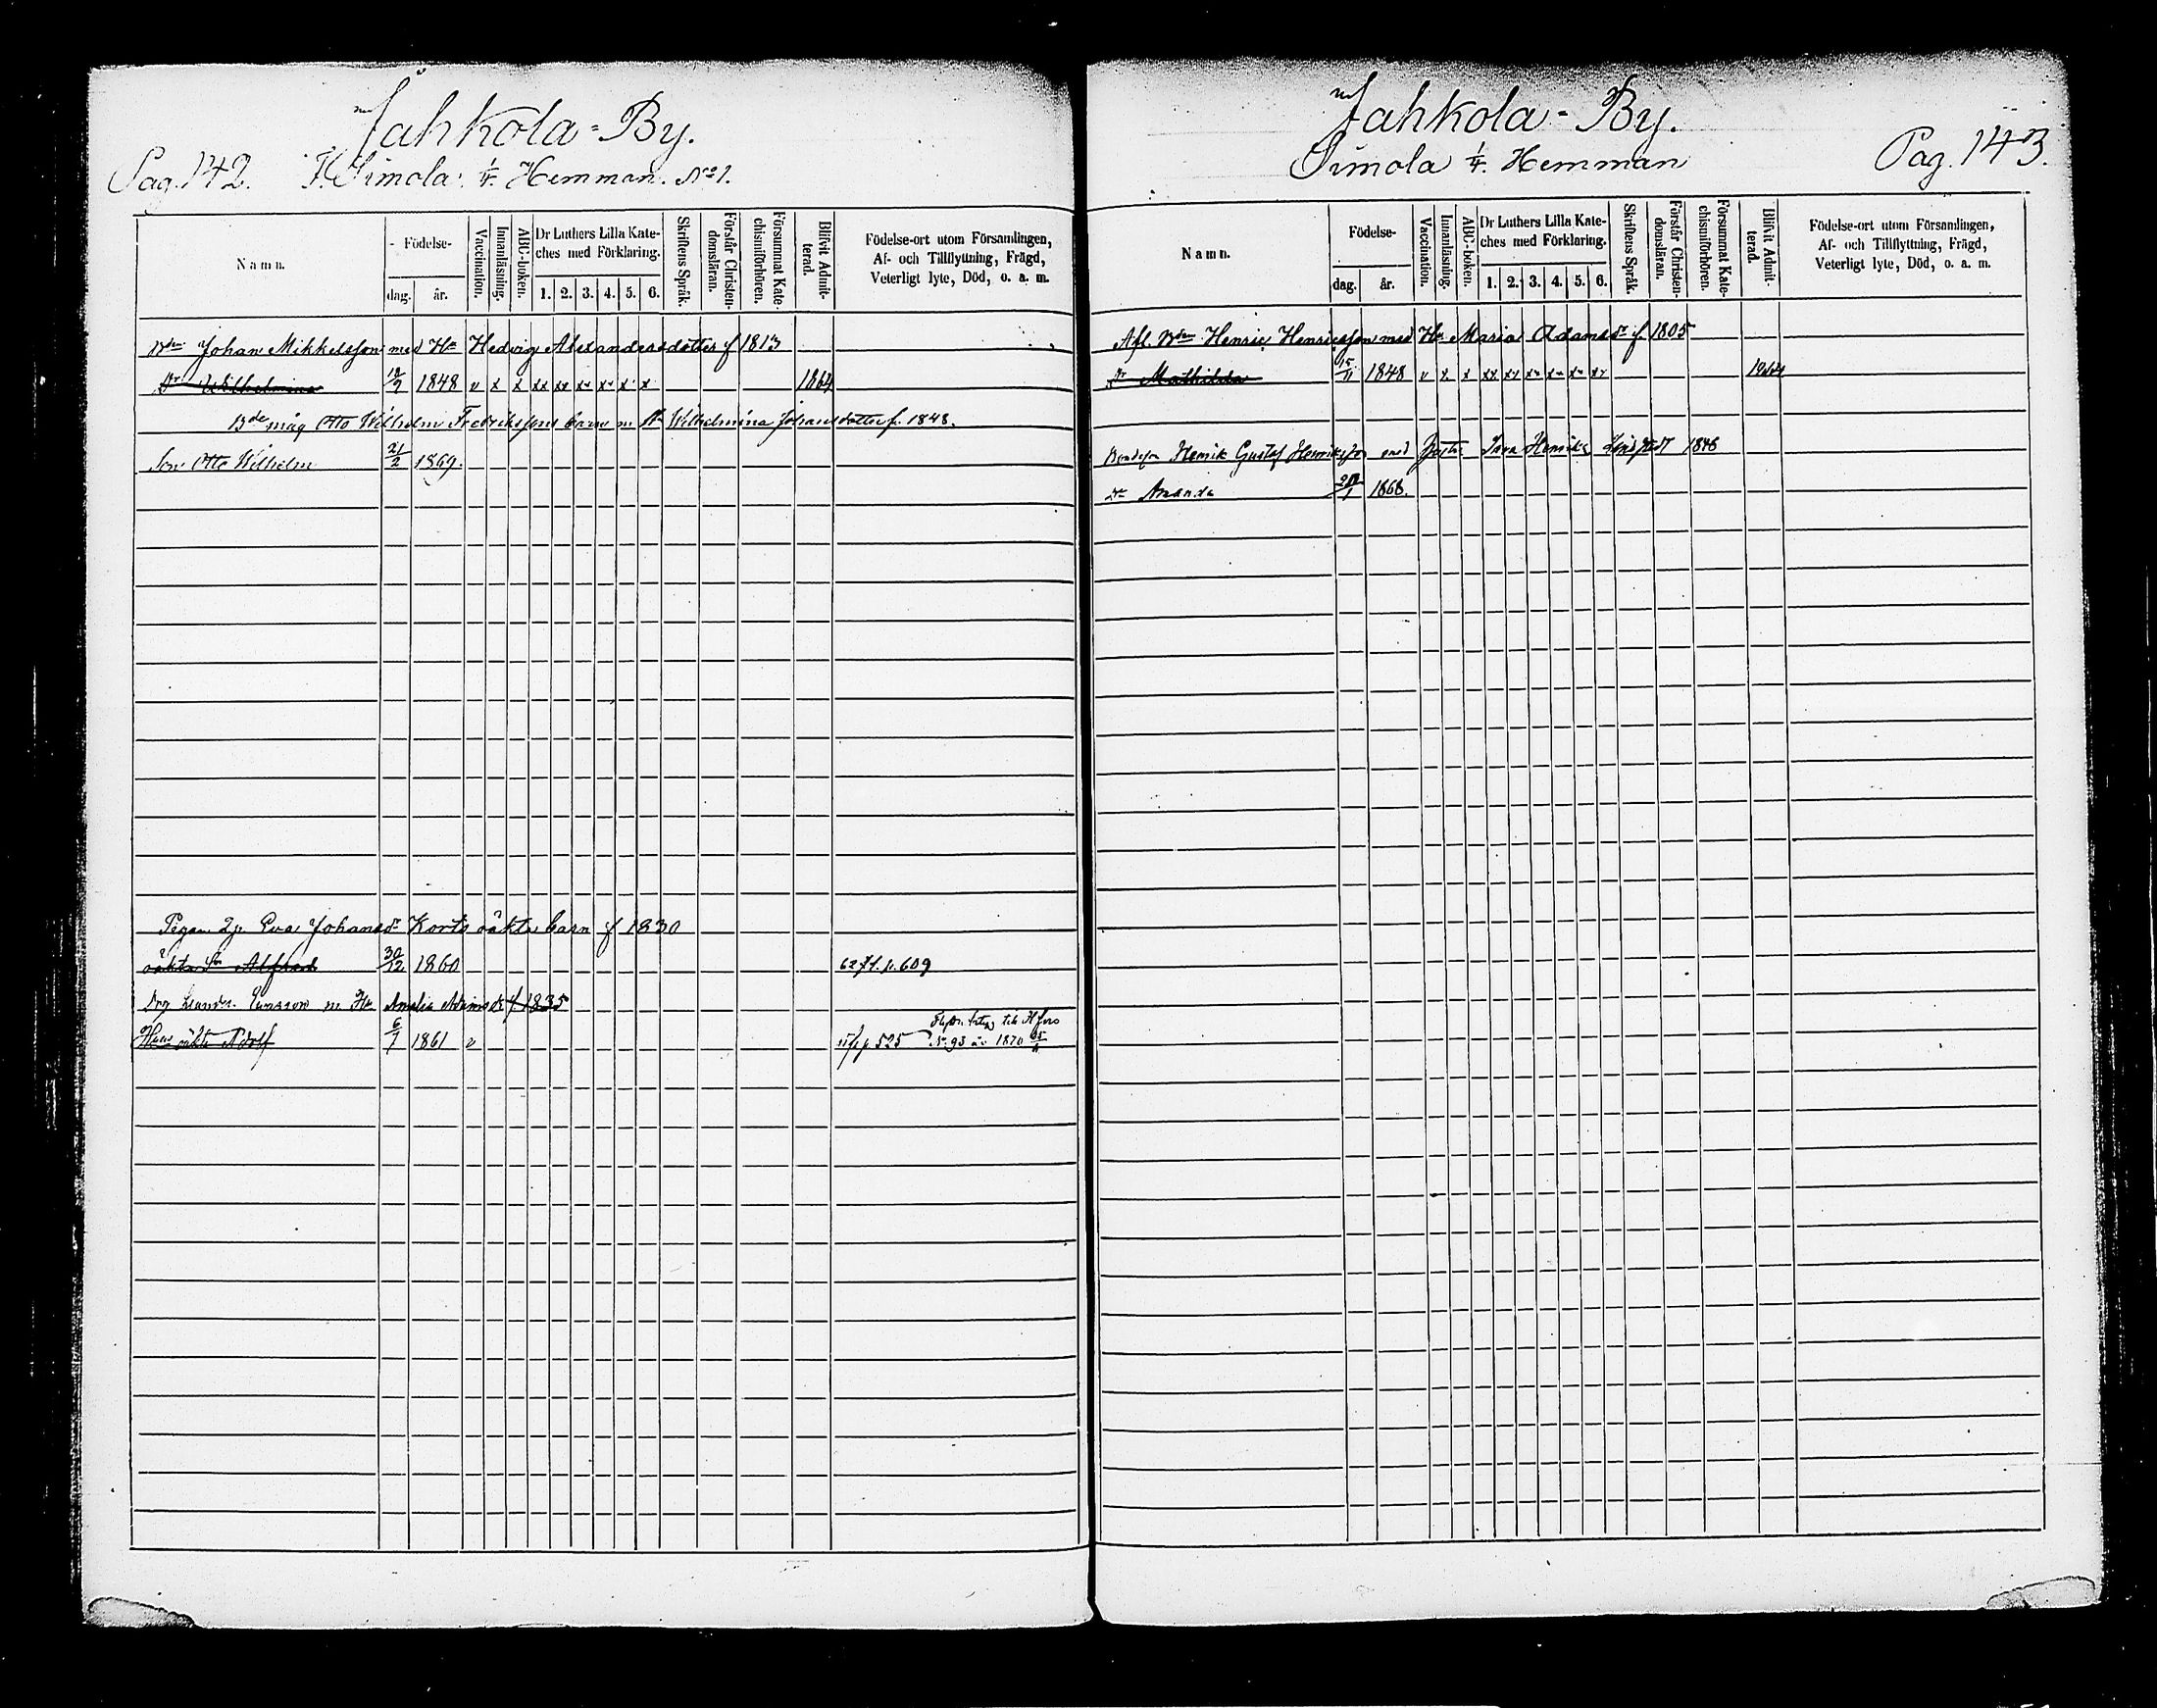 Jahkola-By.
Pag. 142. Simola 1/4 Hemman. No 1.
Namn.
Födelse-
dag. år.
Vaccination.
Innanläsning.
ABC-boken.
Dr Luthers Lilla Kate-
ches med Förklaring.
1. 2. 3. 4. 5. 6.
Skriftens Språk.
Förstår Christen-
domsläran.
Försummat Kate-
chismiförhören.
Blifvit Admit-
terad.
Födelse-ort utom Församlingen,
Af- och Tillflyttning, Frägd,
Veterligt lyte, Död, o. a. m.
Bdn Johan Mikkelsson med Hu Hedvig Alexandersdotter f 1813
Dr Wilhelmina 1848 v x x xx xx xx xx x x 1864
Bde måg Otto Wilhelm Fredrikssons barn m Wilhelmina Johansdotter f. 1848.
Son Otto Wilhelm 21/2 1869.
Pigan Eva Johansdr Korts oäkta barn f 1830
oäkta Sn Alfred 30/12 1860 p. 609
Amalia f. 1835
oäkta Adolf 6/7 1861 v p 525 No 93 år 1870
Jahkola-By.
Simola 1/4 Hemman Pag. 143.
Namn.
Födelse-
dag. år.
Vaccination.
Innanläsning.
ABC-boken.
Dr Luthers Lilla Kate-
ches med Förklaring.
1. 2. 3. 4. 5. 6.
Skriftens Språk.
Förstår Christen-
domsläran.
Försummat Kate-
chismiförhören.
Blifvit Admit-
terad.
Födelse-ort utom Församlingen,
Af- och Tillflyttning, Frägd,
Veterligt lyte, Död, o. a. m.
Afl. Bdn Henric Henricsson med Hu Maria Adamsdr f. 1805
Dr Mathilda 15/11 1848 v x x xx xx xx xx xx xx 1864
Bondeson Henrik Gustaf Henriksson med Henrika 1846
Dr Amanda 1868.